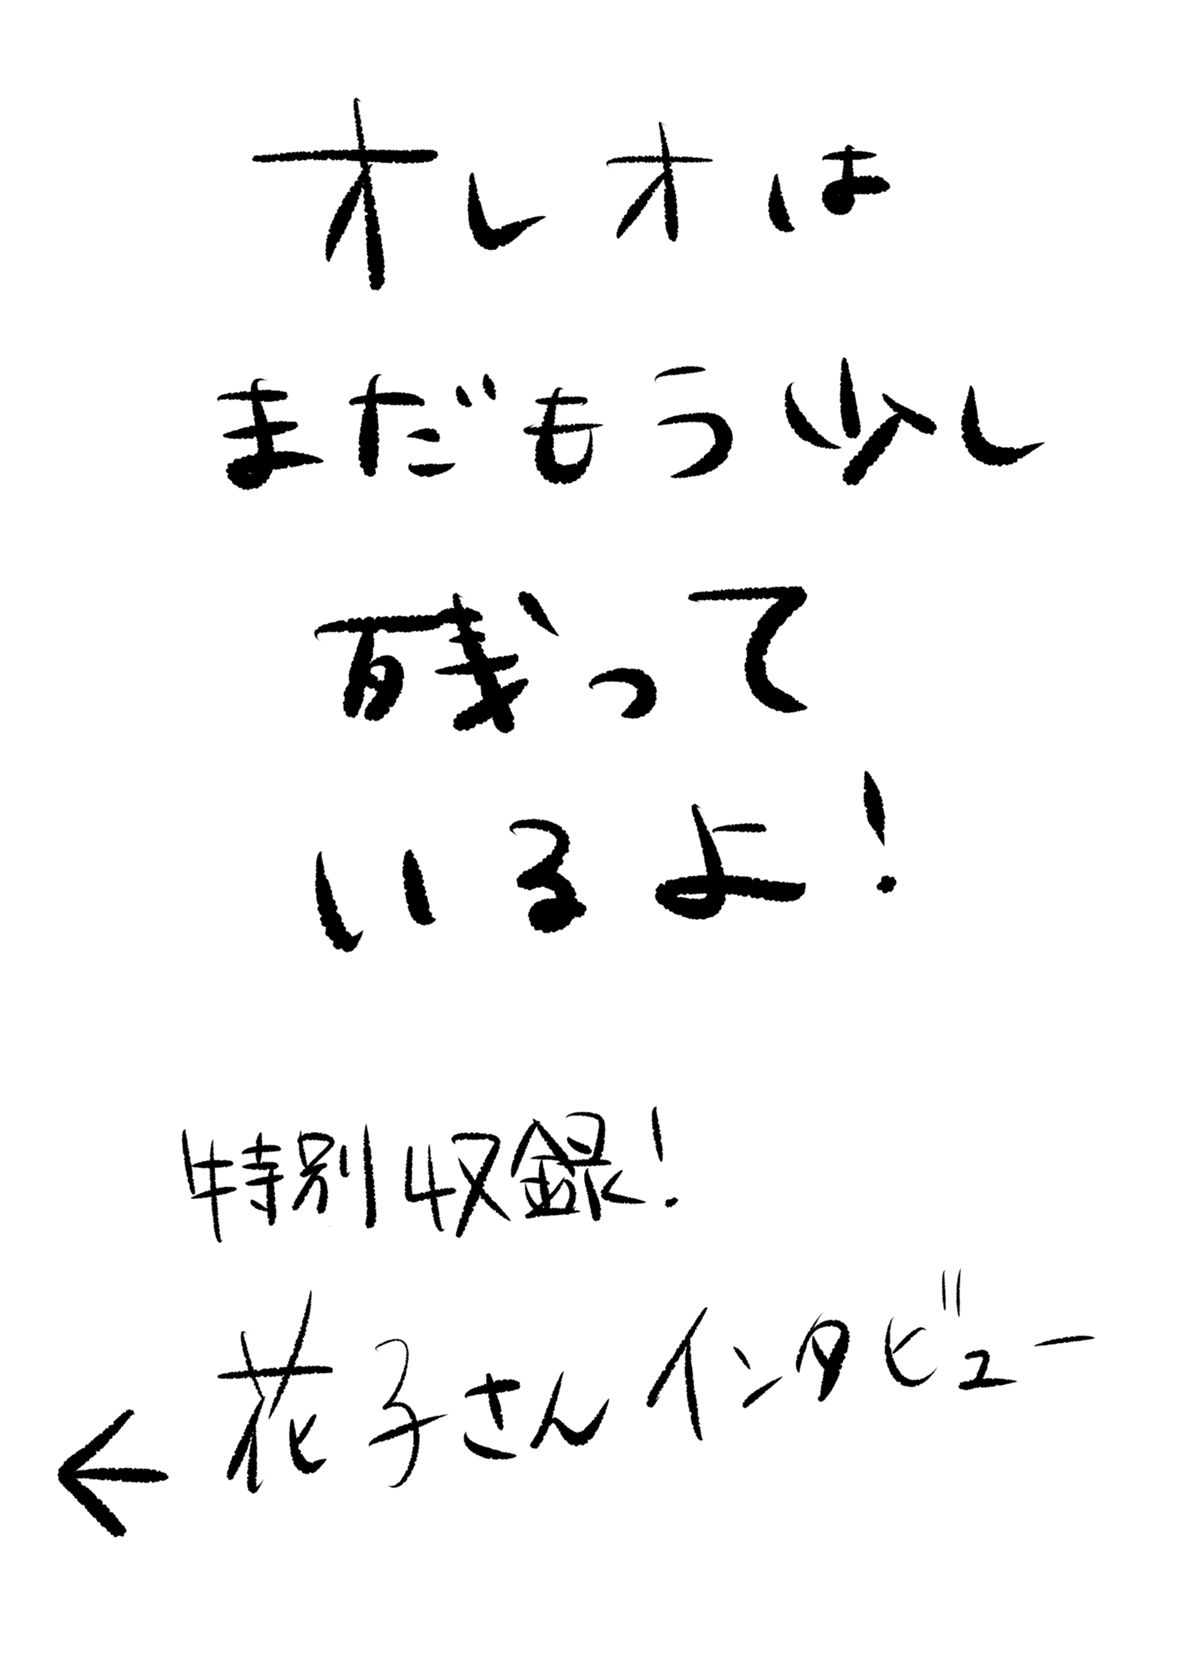 オレオは
まだもう少し
残って
いるよ!
特別収録!
花子さんインタビュー
←